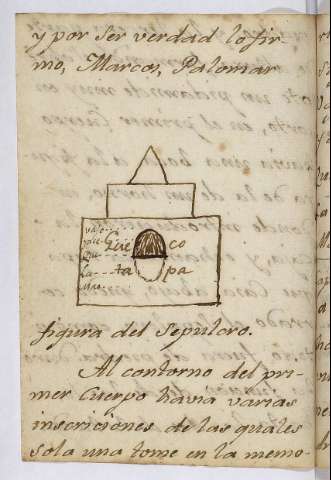 y por ser verdad lo fir-
mo, Marcos, Palomar
co
ta pa
figura del sepulcro.
Al contorno del pri-
mer Cuerpo havia varias
inscriciones de las quales
sola una tome en la memo-